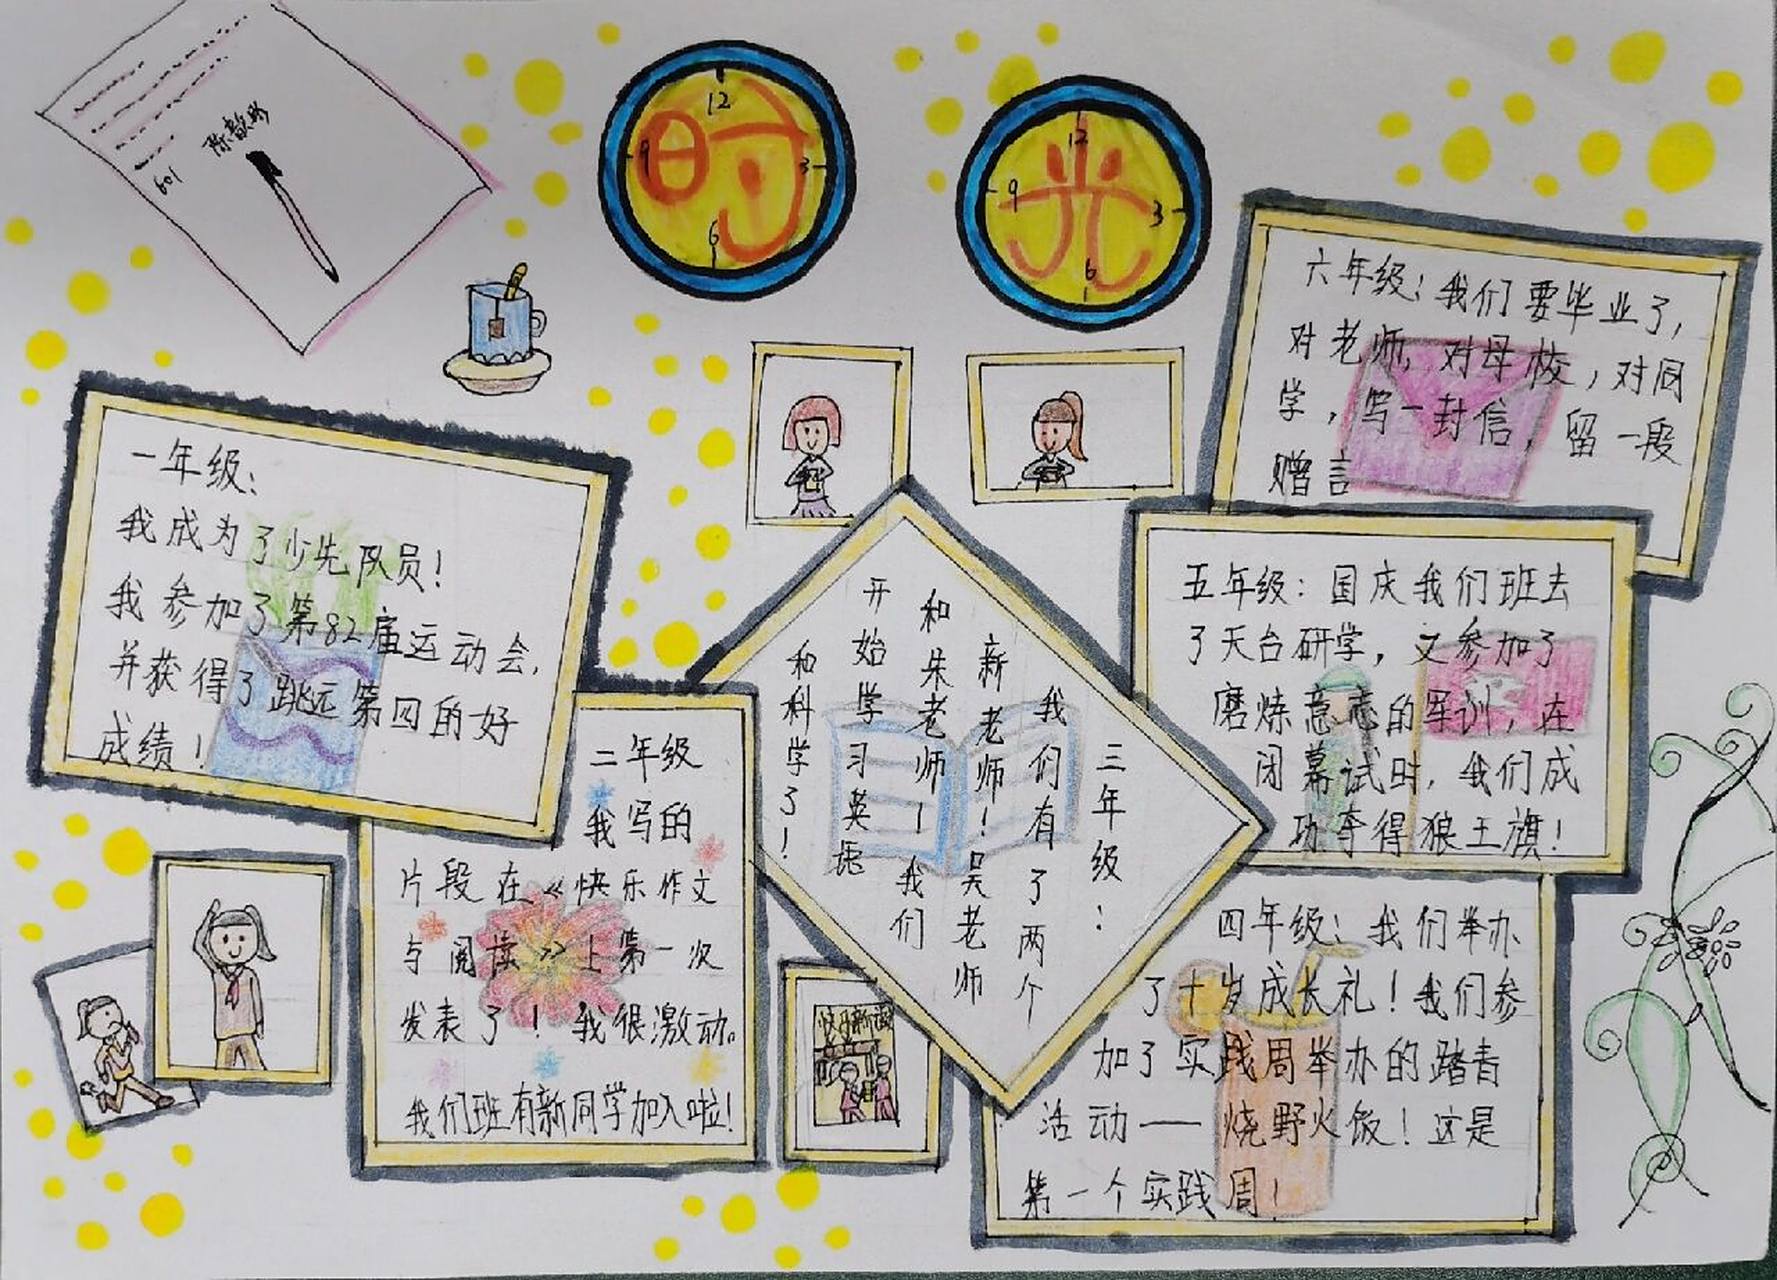 601
时光
12
3
6
9
12
3
6
9
一年级:
我成为了少先队员!
我参加了第82届运动会,
并获得了跳远第四的好
成绩!
二年级
我写的
片段在《快乐作文
与阅读》上第一次
发表了!我很激动。
我们班有新同学加入啦!
三年级:
我们有了两个
新老师!吴老师
和朱老师!我们
开始学习英语
和科学了!
四年级:我们举办
了十岁成长礼!我们参
加了实践周举办的踏青
活动——烧野火饭!这是
第一个实践周!
五年级:国庆我们班去
了天台研学,又参加了
磨炼意志的军训,在
闭幕试时,我们成
功夺得狼王旗!
六年级:我们要毕业了,
对老师,对母校,对同
学,写一封信,留一段
赠言